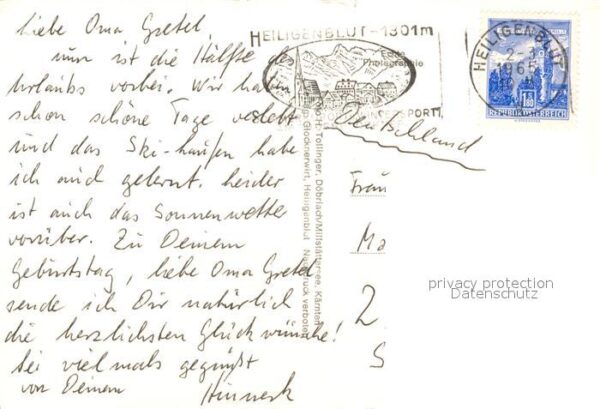 Liebe Oma Gretel,
nun ist die Hälfte des
Urlaubs vorbei. Wir haben
schon schöne Tage verlebt
und das Ski-laufen habe
ich auch gelernt. Leider
ist auch das Sonnenwetter
vorüber. Zu Deinem
Geburtstag, liebe Oma Gretel
sende ich Dir natürlich
die herzlichsten Glückwünsche!
Sei vielmals gegrüßt
von Deinem
Hinnerk
HEILIGENBLUT-1301m
Echte
Photographie
SPORT
HEILIGENBLUT
1965
1.80
REPUBLIK ÖSTERREICH
Deutschland
Photo H. Tollinger, Döbriach/Millstättersee, Kärnten
Glocknerwirt, Heiligenblut Nachdruck verboten
Frau
Ma
2
S
privacy protection
Datenschutz